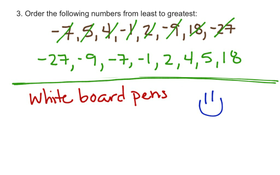 3. Order the following numbers from least to greatest:
-7, 5, 4, -1, 2, -9, 18, -27
-27, -9, -7, -1, 2, 4, 5, 18
White board pens